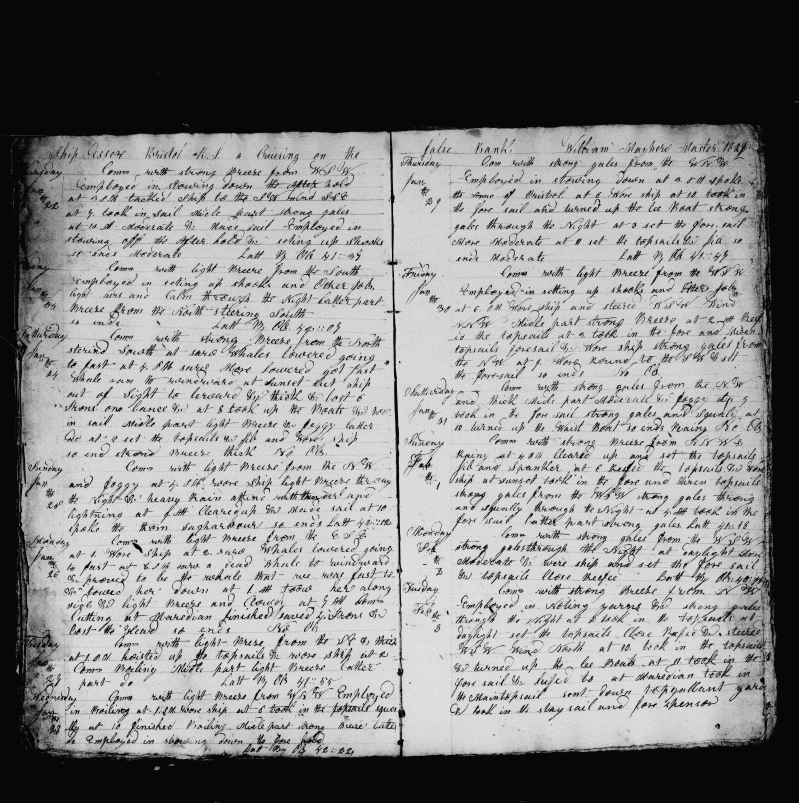 Ship Essex Bristol R.I a Cruising on the
Thursday Com with strong Breeze from W S W
Jan Employed in stowing down the After hold
22 at 3 PM tacked Ship to the S W wind SSE
at 7 took in sail Midle part strong gales
at 10 AM Moderate & Made sail Employed in
stowing off the After hold & seting up Shooks
so ends Moderate Latt By Ob 41=39
Friday Com with light Breeze from the South
Jan Employed in seting up shooks and Other Jobs
23 light airs and Calm through the Night latter part
Breeze from the North steering South
so ends Latt By Ob 40=09
Satturday Com with strong Breeze from the North
Jan stering South at saw Whales lowered going
24 to fast at 4 PM saw More lowered got fast
Whale ran to windward at sunset lost ship
out of sight to leward & thick & lost 6
Irons one lance & at 8 took up the Boats &
in sail Midle part light Breeze & foggy latter
do at 2 set the topsails & jib and wore ship
so ends strong Breeze thick No Ob
Sunday Com with light Breeze from the N W
Jan and foggy at 4 PM wore ship light Breeze through
25 the Night & heavy Rain attend with thunder and
lightning at AM Cleared up & Made sail at 10
spoke the Ham Sagharbour so ends Latt 42=12
Monday Com with light Breeze from the E S E
Jan at 1 Wore Ship at 2 saw Whales lowered going
26 to fast at 6 PM saw a dead Whale to windward
& proved to be the whale that we were fast to
lowed her down at 1 AM took her along
side & light Breeze and Cloudy at 7 AM Com
Cutting at Maredian finished saved 2 Irons &
lost the Head so ends No Ob
Tuesday Com with light Breeze from the S E & thick
Jan at 1 PM hoisted up the topsails & wore ship at 2
27 Com Boiling Midle part light Breeze latter
part do Latt By Ob 41=55
Wednesday Com with light Breeze from W S W Employed
Jan in Boiling at 1 PM wore ship at 6 took in the topsails squa
28 lly at 10 finished Boiling Midle part strong Breeze latter
do Employed in stowing down the fore hold
Latt By Ob 42=22
false Bank William Master 1829
Thursday Com with strong gales from the W N W
Jan Employed in stowing down at 3 PM spoke
29 the Anne of Bristol at 6 Wore ship at 10 took in
the fore sail and turned up the lee Boat strong
gales through the Night at 3 set the fore sail
More Moderate at 11 set the topsails & jib so
ends Moderate Latt By Ob 41=47
Friday Com with light Breeze from the W S W
Jan Employed in setting up shooks and Other Jobs
30 at 6 PM Wore ship and steered W S W Wind
N N W Midle part strong Breeze at 2 AM Reef
ed the topsails at 3 took in the fore and Mizen
topsails foresail & Wore ship strong gales from
the N W at 8 Wore Round to the S W & set
the fore sail so ends No Ob
Satturday Com with strong gales from the N W
Jan and thick Midle part Moderate & foggy at 9
31 took in the fore sail strong gales and squaly at
10 turned up the Waist Boat so ends Raining No Ob
Sunday Com with strong Breeze from N N W &
Feb Rainy at 4 PM Cleared up and set the topsails
1 jib and Spanker at 6 Reefed the topsails & wore
ship at sunset took in the fore and Mizen topsails
strong gales from the W S W strong gales throug
and squally through the Night at 4 AM took in the
fore sail latter part strong gales Latt 41=16
Monday Com with strong gales from the W S W
Feb strong gales through the Night at daylight More
2 Moderate & wore ship and set the fore sail
& topsails Close Reefed Latt By Ob 40=
Tuesday Com with strong Breeze from N W
Feb Employed in Noting yarns & strong gales
3 through the Night at 6 took in the topsails at
daylight set the topsails Close Reefed & steered
W S W Wind North at 10 took in the topsails
& turned up the lee Boats at 11 took in the
fore sail & Reefed to at Maredian took in
the Maintopsail sent down topgallant yards
& took in the stay sail and fore spenser